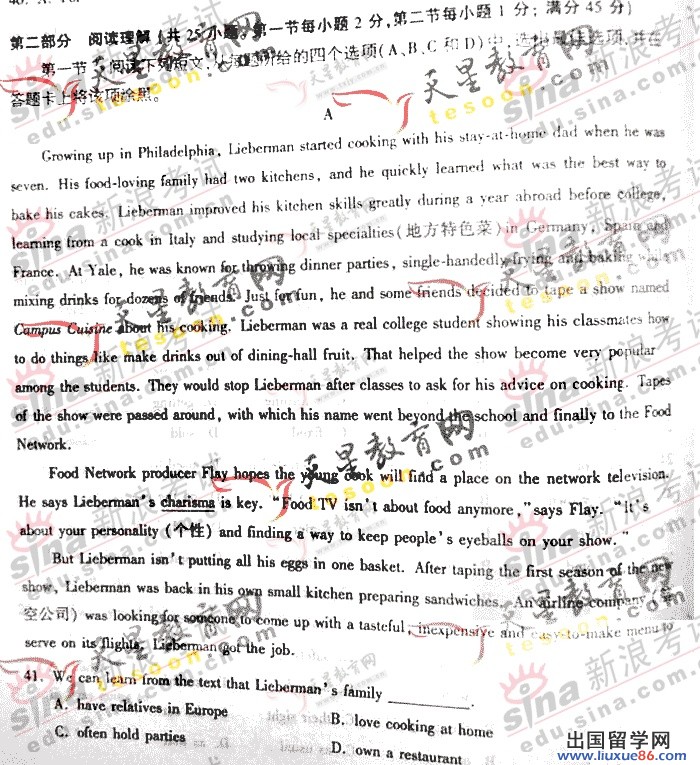 第二部分 阅读理解(共25小题。第一节每小题2分,第二节每小题1分;满分45分)
第一节 阅读下列短文,从每题所给的四个选项(A、B、C和D)中,选出最佳选项,并在
答题卡上将该项涂黑。
A
Growing up in Philadelphia, Lieberman started cooking with his stay-at-home dad when he was
seven. His food-loving family had two kitchens, and he quickly learned what was the best way to
bake his cakes. Lieberman improved his kitchen skills greatly during a year abroad before college,
learning from a cook in Italy and studying local specialties(地方特色菜)in Germany, Spain and
France. At Yale, he was known for throwing dinner parties, single-handedly frying and baking while
mixing drinks for dozens of friends. Just for fun, he and some friends decided to tape a show named
Campus Cuisine about his cooking. Lieberman was a real college student showing his classmates how
to do things like make drinks out of dining-hall fruit. That helped the show become very popular
among the students. They would stop Lieberman after classes to ask for his advice on cooking. Tapes
of the show were passed around, with which his name went beyond the school and finally to the Food
Network.
Food Network producer Flay hopes the young cook will find a place on the network television.
He says Lieberman's charisma is key. "Food TV isn't about food anymore," says Flay. "It's
about your personality (个性) and finding a way to keep people's eyeballs on your show. "
But Lieberman isn't putting all his eggs in one basket. After taping the first season of the new
show, Lieberman was back in his own small kitchen preparing sandwiches. An airline company (航
空公司) was looking for someone to come up with a tasteful, inexpensive and easy-to-make menu to
serve on its flights. Lieberman got the job.
41. We can learn from the text that Lieberman's family ________.
A. have relatives in Europe
B. love cooking at home
C. often hold parties
D. own a restaurant
天星教育网
tesoon.com
sina新浪考试
edu.sina.com.cn
出国留学网
www.liuxue86.com